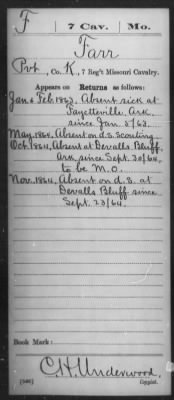 F
7 Cav.
Mo.
Farr
Pvt, Co. K, 7 Reg't Missouri Cavalry.
Appears on Returns as follows:
Jan & Feb. 1863. Absent sick at
Fayetteville Ark.
since Jan. 5/63.
May 1864, Absent on d.S. Scouting.
Oct. 1864, Absent at Devalls Bluff.
Ark. since Sept. 30/64,
to be M.O.
Nov. 1864, Absent on d.S. at
Devalls Bluff since
Sept. 23/64.
Book Mark:
C.H. Underwood,
(546)
Copyist.